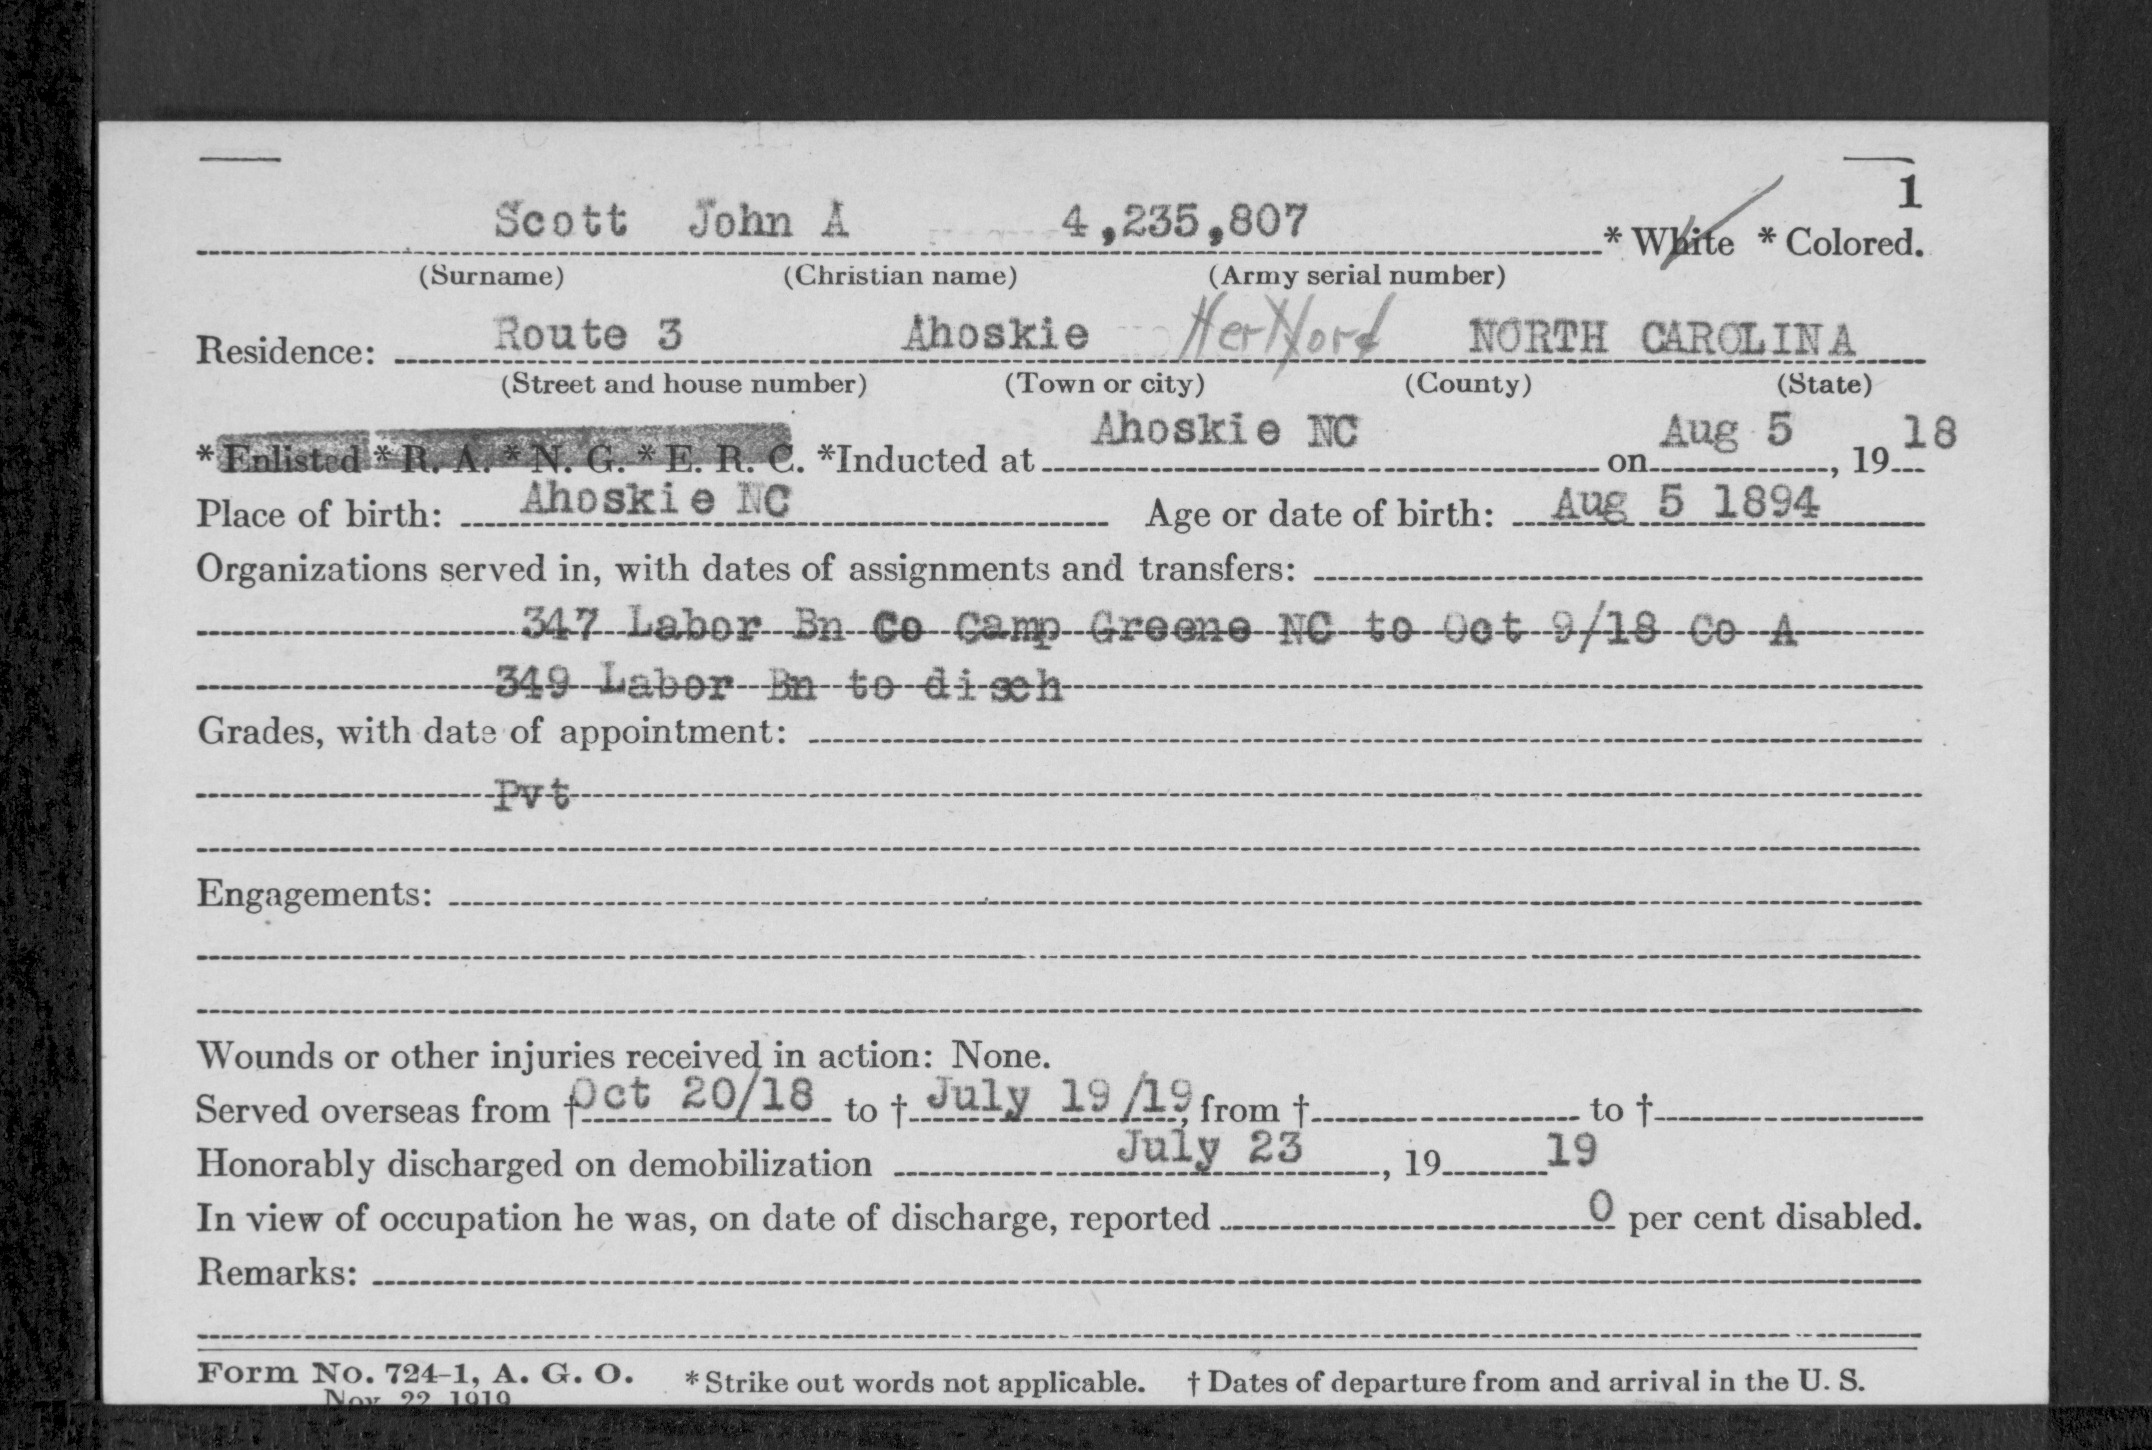 1
Scott John A 4,235,807 * White * Colored.
(Surname) (Christian name) (Army serial number)
Residence: Route 3 Ahoskie Hertford NORTH CAROLINA
(Street and house number) (Town or city) (County) (State)
* Enlisted * R. A. * N. G. * E. R. C. *Inducted at Ahoskie NC on Aug 5, 1918
Place of birth: Ahoskie NC Age or date of birth: Aug 5 1894
Organizations served in, with dates of assignments and transfers:
347 Labor Bn Co Camp Greene NC to Oct 9/18 Co A
349 Labor Bn to disch
Grades, with date of appointment:
Pvt
Engagements:
Wounds or other injuries received in action: None.
Served overseas from † Oct 20/18 to † July 19/19, from † to †
Honorably discharged on demobilization July 23, 1919
In view of occupation he was, on date of discharge, reported 0 per cent disabled.
Remarks:
Form No. 724-1, A. G. O. * Strike out words not applicable. † Dates of departure from and arrival in the U. S.
Nov. 22, 1919